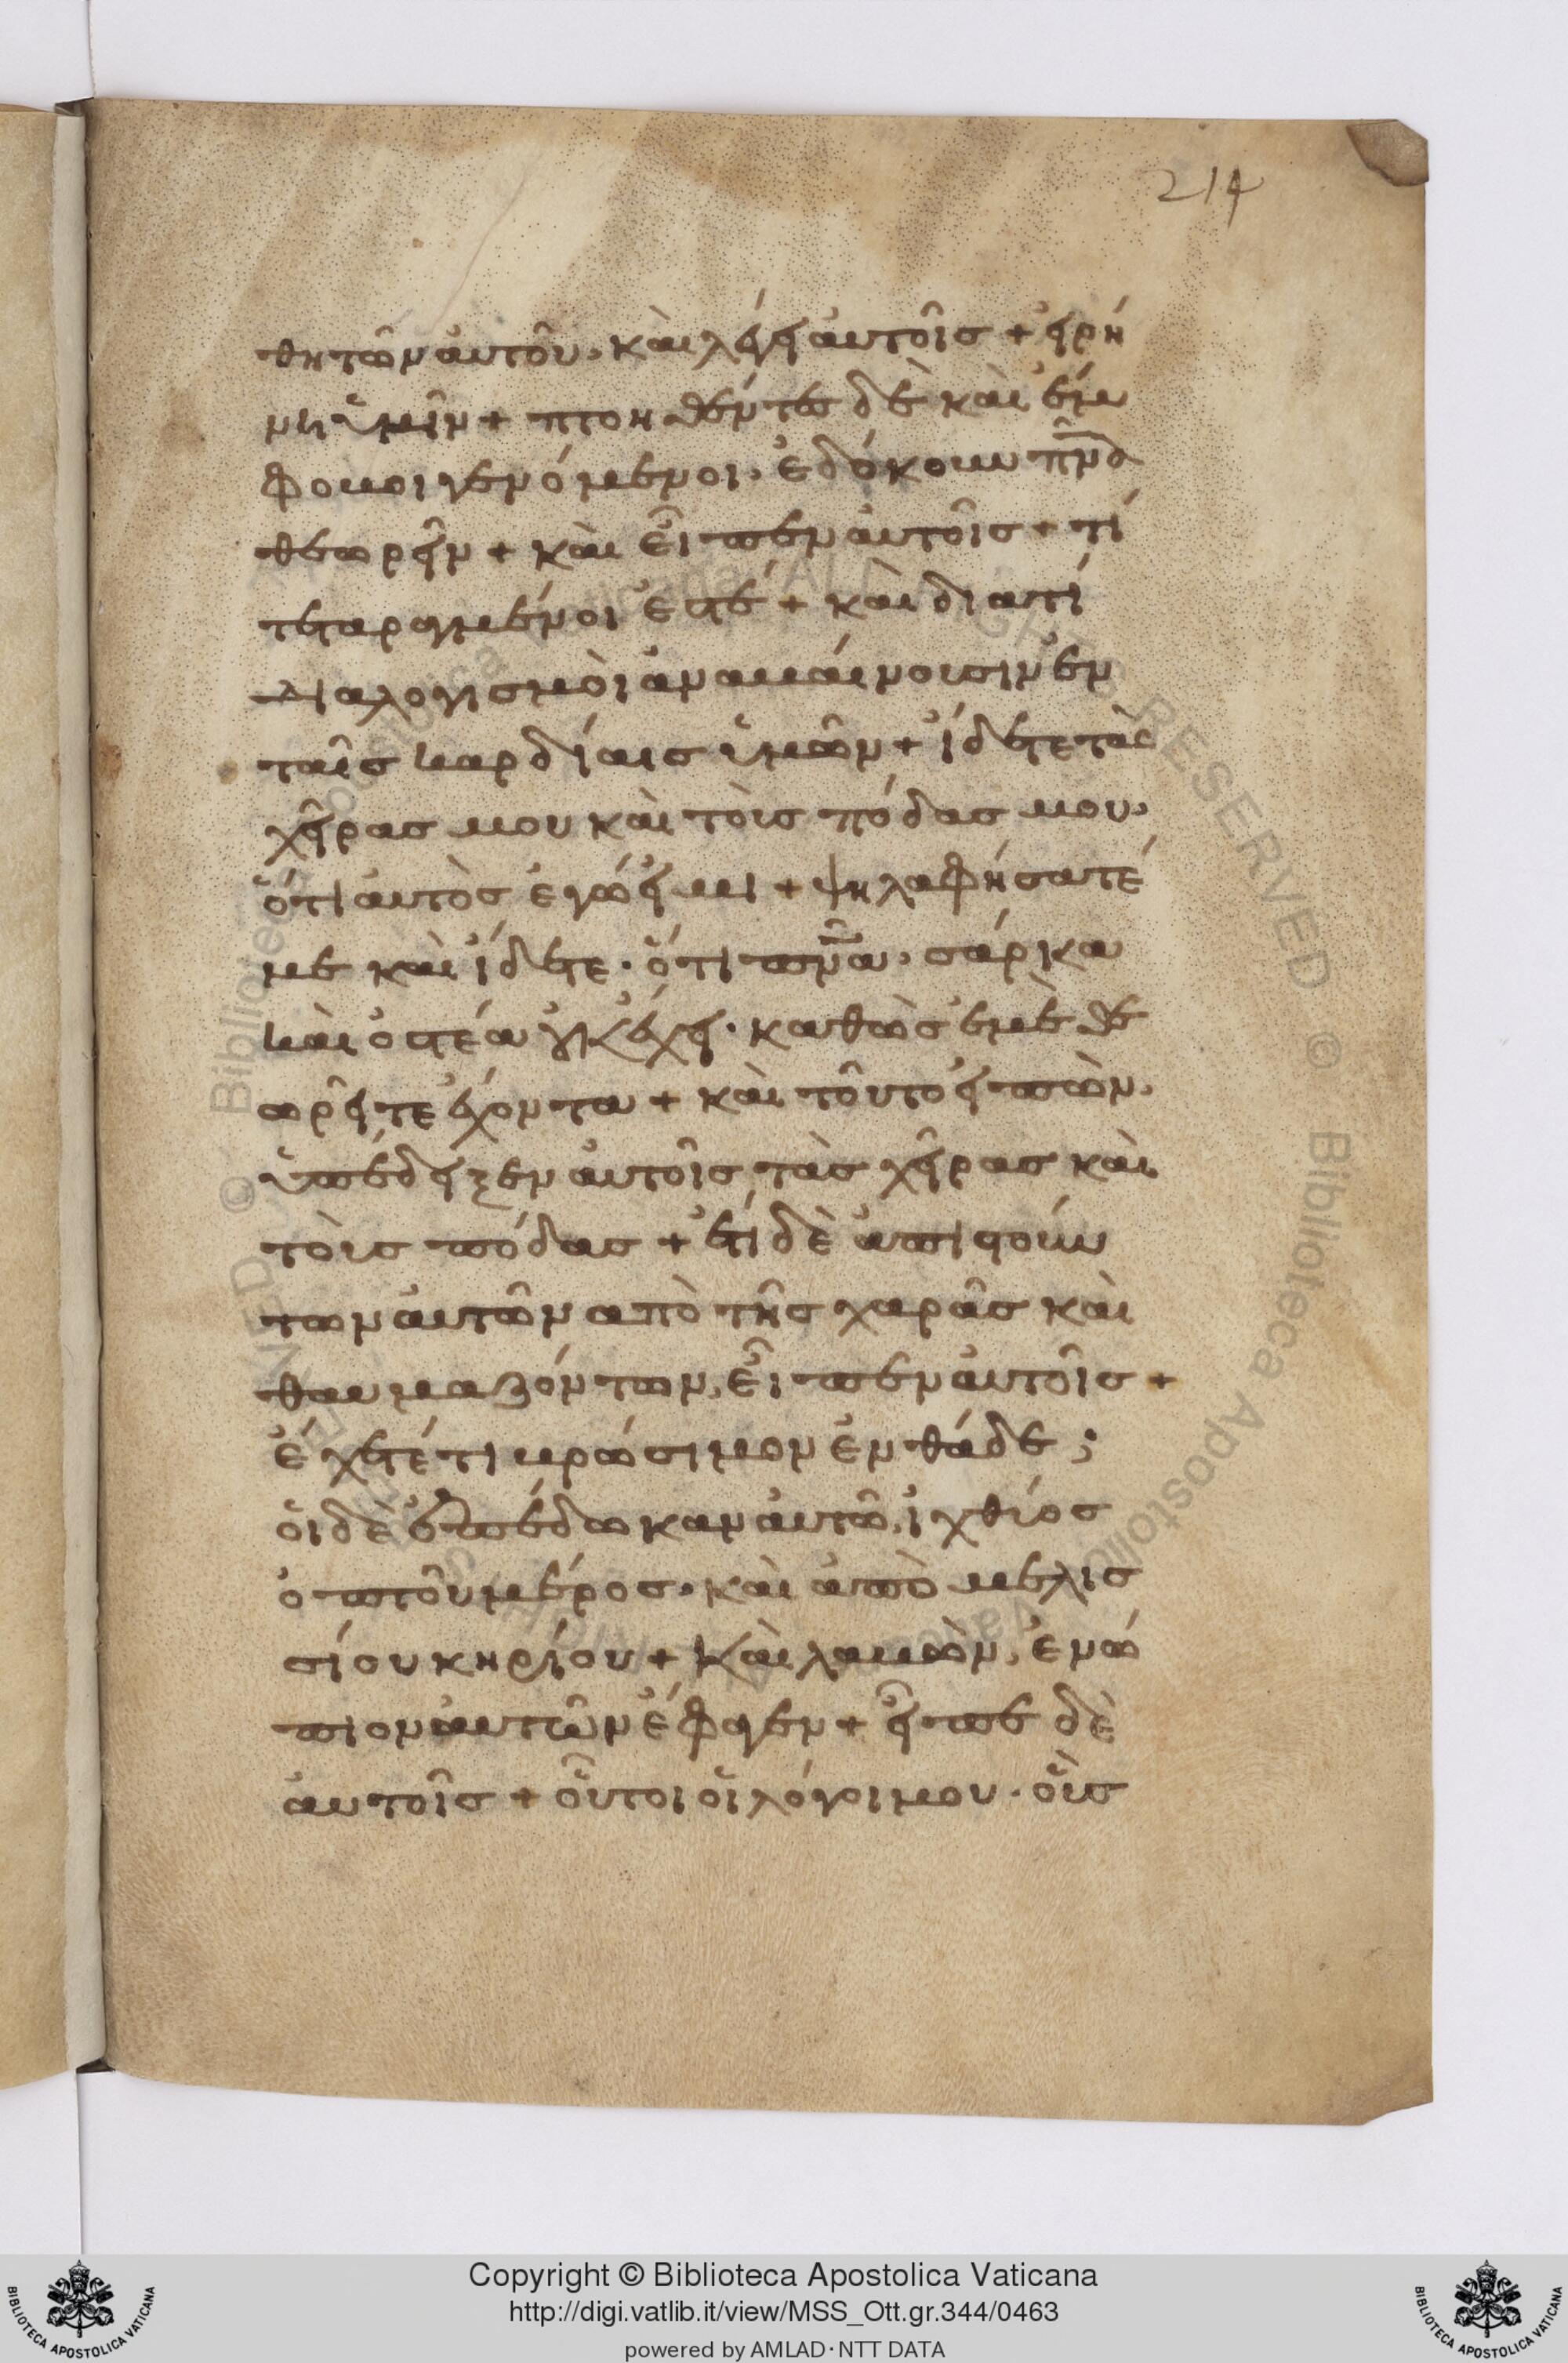 214
θητῶν αὐτοῦ. καὶ λέγει αὐτοῖς + εἰρή
νη ὑμῖν + πτοηθέντες δὲ καὶ ἔμ
φοβοι γενόμενοι. ἐδόκουν πν̅α
θεωρεῖν + καὶ εἶπεν αὐτοῖς + τί
τεταραγμένοι ἐστέ + καὶ διατί
διαλογισμοὶ ἀναβαίνουσιν ἐν
ταῖς καρδίαις ὑμῶν + ἴδετε τὰς
χεῖρας μου καὶ τοὺς πόδας μου.
ὅτι αὐτὸς ἐγώ εἰμι + ψηλαφήσατέ
με καὶ ἴδετε. ὅτι πν̅α. σάρκα
καὶ ὀστέα οὐκ ἔχει. καθὼς ἐμὲ θε
ωρεῖτε ἔχοντα + καὶ τοῦτο εἰπὼν.
ὑπέδειξεν αὐτοῖς τὰς χεῖρας καὶ
τοὺς πόδας + ἔτι δὲ ἀπιστούν
των αὐτῶν απὸ τῆς χαρᾶς καὶ
θαυμαζόντων, εἶπεν αὐτοῖς +
ἔχετέ τι βρώσιμον ἐνθάδε;
οἱ δὲ ἐπέδωκαν αὐτῶ, ἰχθύος
ὀπτοῦ μέρος. καὶ ἀπὸ μελισ
σίου κηρίου + Καὶ λαβὼν, ἐνώ
πιον αὐτῶν ἔφαγεν + εἶπε δὲ
αὐτοῖς + οὗτοι οἱ λόγοι μου. οὓς
Copyright © Biblioteca Apostolica Vaticana
http://digi.vatlib.it/view/MSS_Ott.gr.344/0463
powered by AMLAD·NTT DATA
BIBLIOTECA APOSTOLICA VATICANA
BIBLIOTECA APOSTOLICA VATICANA